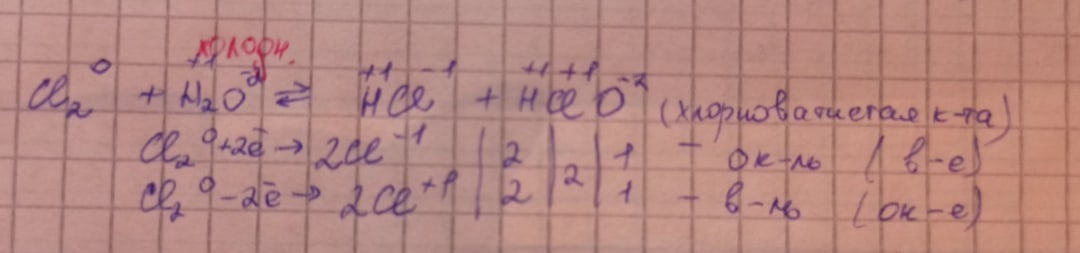 холодн.
Cl₂⁰ + H₂⁺¹O⁻² ⇄ H⁺¹Cl⁻¹ + H⁺¹Cl⁺¹O⁻² (хлорноватистая к-та)
Cl₂⁰ +2ē → 2Cl⁻¹ | 2 | 2 | 1 - ок-ль (в-е)
Cl₂⁰ -2ē → 2Cl⁺¹ | 2 | 1 - в-ль (ок-е)